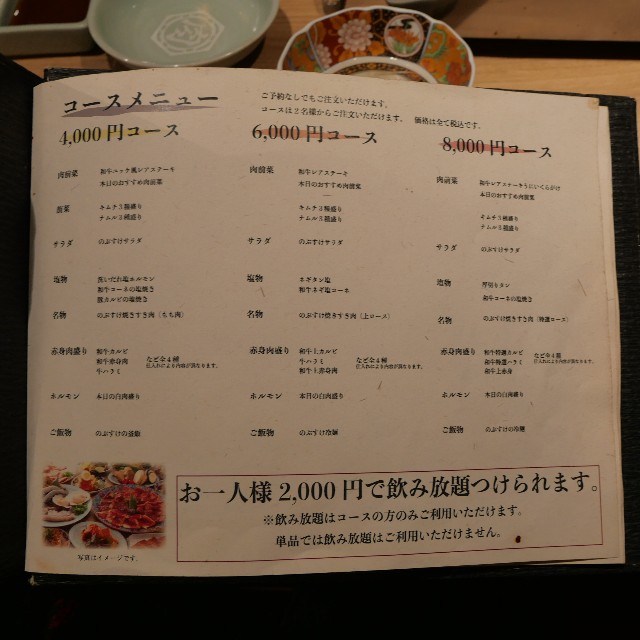 コースメニュー
ご予約なしでもご注文いただけます。
コースは2名様からご注文いただけます。 価格は全て税込です。
4,000円コース
肉前菜 和牛ユッケ風レアステーキ
本日のおすすめ肉前菜
前菜 キムチ3種盛り
ナムル3種盛り
サラダ のぶすけサラダ
塩物 洗いだれ塩ホルモン
和牛コーネの塩焼き
豚カルビの塩焼き
名物 のぶすけ焼きすき肉(もも肉)
赤身肉盛り 和牛カルビ
和牛赤身肉 など全4種
牛ハラミ 仕入れにより内容が異なります。
ホルモン 本日の白肉盛り
ご飯物 のぶすけの釜飯
6,000円コース
肉前菜 和牛レアステーキ
本日のおすすめ肉前菜
キムチ3種盛り
ナムル3種盛り
サラダ のぶすけサラダ
塩物 ネギタン塩
和牛ネギ塩コーネ
名物 のぶすけ焼きすき肉(上ロース)
赤身肉盛り 和牛上カルビ
牛ハラミ など全4種
和牛上赤身肉 仕入れにより内容が異なります。
ホルモン 本日の白肉盛り
ご飯物 のぶすけ冷麺
8,000円コース
肉前菜 和牛レアステーキうにいくらがけ
本日のおすすめ肉前菜
キムチ3種盛り
ナムル3種盛り
サラダ のぶすけサラダ
塩物 厚切りタン
和牛コーネの塩焼き
名物 のぶすけ焼きすき肉(特選ロース)
赤身肉盛り 和牛特選カルビ
和牛特選ハラミ など全4種
和牛上赤身 仕入れにより内容が異なります。
ホルモン 本日の白肉盛り
ご飯物 のぶすけの冷麺
お一人様2,000円で飲み放題つけられます。
※飲み放題はコースの方のみご利用いただけます。
単品では飲み放題はご利用いただけません。
写真はイメージです。